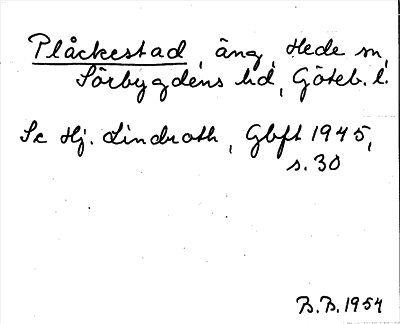 Plåckestad, äng, Hede sn,
Sörbygdens hd, Göteb. l.
Se Hj. Lindroth, Gbft 1945,
s. 30
B.B. 1954